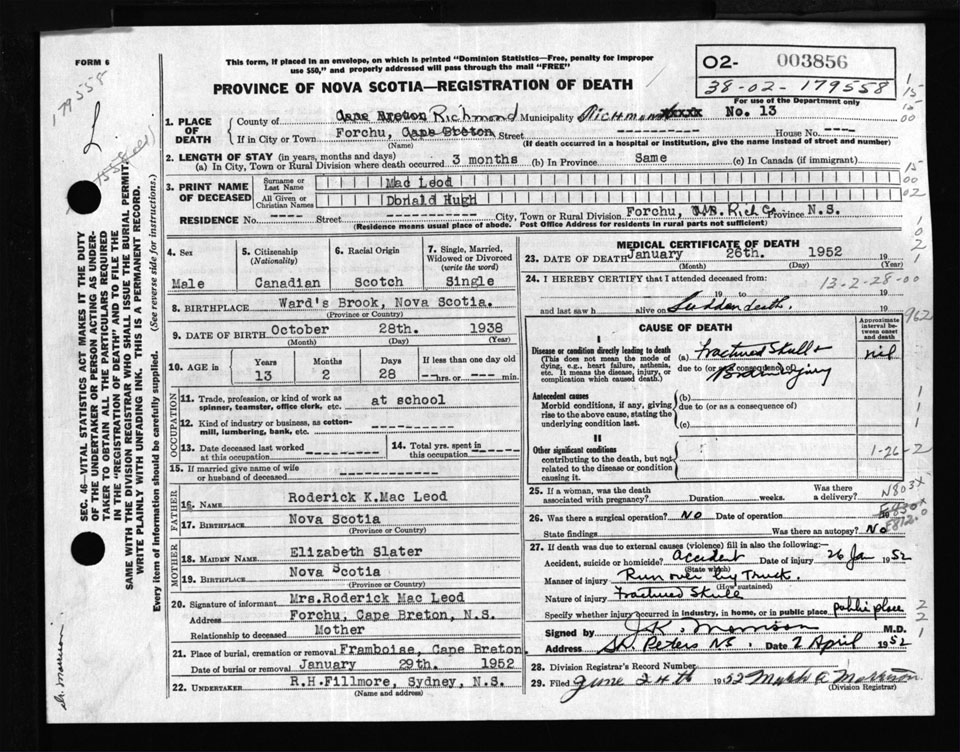 FORM 6
This form, if placed in an envelope, on which is printed "Dominion Statistics—Free, penalty for improper
use $50," and properly addressed will pass through the mail "FREE"
PROVINCE OF NOVA SCOTIA—REGISTRATION OF DEATH
02- 003856
38-02-179558
For use of the Department only
No. 13
179558
SEC. 46—VITAL STATISTICS ACT MAKES IT THE DUTY
OF THE UNDERTAKER OR PERSON ACTING AS UNDER-
TAKER TO OBTAIN ALL THE PARTICULARS REQUIRED
IN THE "REGISTRATION OF DEATH" AND TO FILE THE
SAME WITH THE DIVISION REGISTRAR WHO SHALL ISSUE THE BURIAL PERMIT.
WRITE PLAINLY WITH UNFADING INK. THIS IS A PERMANENT RECORD.
Every item of Information should be carefully supplied. (See reverse side for instructions.)
1. PLACE OF DEATH
County of Cape Breton Richmond Municipality Richmond
If in City or Town Forchu, Cape Breton Street ------ House No. ----
(Name) (If death occurred in a hospital or institution, give the name instead of street and number)
2. LENGTH OF STAY (in years, months and days)
(a) In City, Town or Rural Division where death occurred 3 months (b) In Province Same (c) In Canada (if immigrant)
3. PRINT NAME OF DECEASED
Surname or Last Name Mac Leod
All Given or Christian Names Donald Hugh
RESIDENCE No. ---- Street ---------- City, Town or Rural Division Forchu, Rich Co. Province N.S.
(Residence means usual place of abode. Post Office Address for residents in rural parts not sufficient)
4. Sex Male
5. Citizenship (Nationality) Canadian
6. Racial Origin Scotch
7. Single, Married, Widowed or Divorced (write the word) Single
8. BIRTHPLACE Ward's Brook, Nova Scotia.
(Province or Country)
9. DATE OF BIRTH October 28th. 1938
(Month) (Day) (Year)
10. AGE in Years 13 Months 2 Days 28 If less than one day old ---hrs. or ---min.
OCCUPATION
11. Trade, profession, or kind of work as spinner, teamster, office clerk, etc. at school
12. Kind of industry or business, as cotton-mill, lumbering, bank, etc. --------
13. Date deceased last worked at this occupation ---------
14. Total yrs. spent in this occupation --------
15. If married give name of wife or husband of deceased ----------
FATHER
16. NAME Roderick K.Mac Leod
17. BIRTHPLACE Nova Scotia
(Province or Country)
MOTHER
18. MAIDEN NAME Elizabeth Slater
19. BIRTHPLACE Nova Scotia
(Province or Country)
20. Signature of informant Mrs.Roderick Mac Leod
Address Forchu, Cape Breton, N.S.
Relationship to deceased Mother
21. Place of burial, cremation or removal Framboise, Cape Breton
Date of burial or removal January 29th. 1952
22. UNDERTAKER R.H.Fillmore, Sydney, N.S.
(Name and address)
MEDICAL CERTIFICATE OF DEATH
23. DATE OF DEATH January 26th. 1952 19
(Month) (Day)
24. I HEREBY CERTIFY that I attended deceased from: 13-2-28-00
19 to 19
and last saw h alive on Sudden death. 19
CAUSE OF DEATH
Approximate interval between onset and death
I
Disease or condition directly leading to death
(This does not mean the mode of dying, e.g., heart failure, asthenia, etc. It means the disease, injury, or complication which caused death.)
(a) Fractured Skull & nil
due to (or as a consequence of)
Antecedent causes
Morbid conditions, if any, giving rise to the above cause, stating the underlying condition last.
(b)
due to (or as a consequence of)
(c)
II
Other significant conditions
contributing to the death, but not related to the disease or condition causing it.
1-26-2
25. If a woman, was the death associated with pregnancy? Duration weeks. Was there a delivery? N803X
26. Was there a surgical operation? No Date of operation 19
State findings Was there an autopsy? No
27. If death was due to external causes (violence) fill in also the following:—
Accident, suicide or homicide? Accident Date of injury 26 Jan 1952
(State which)
Manner of injury Run over by Truck.
(How sustained)
Nature of injury Fractured Skull
Specify whether injury occurred in industry, in home, or in public place public place
Signed by J.K. Morrison M.D.
Address St. Peters NS Date 2 April 1952
28. Division Registrar's Record Number
29. Filed June 24th 1952
(Division Registrar)